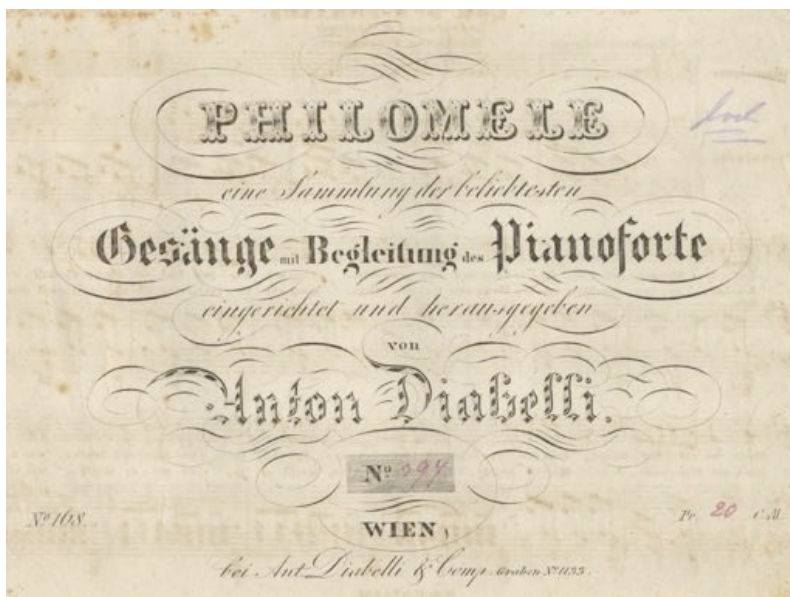 PHILOMELE
eine Sammlung der beliebtesten
Gesänge mit Begleitung des Pianoforte
eingerichtet und herausgegeben
von
Anton Diabelli.
Nº 394
Nº 168.
Pr. 20 C.M.
WIEN,
bei Ant. Diabelli & Comp. Graben Nº 1133.